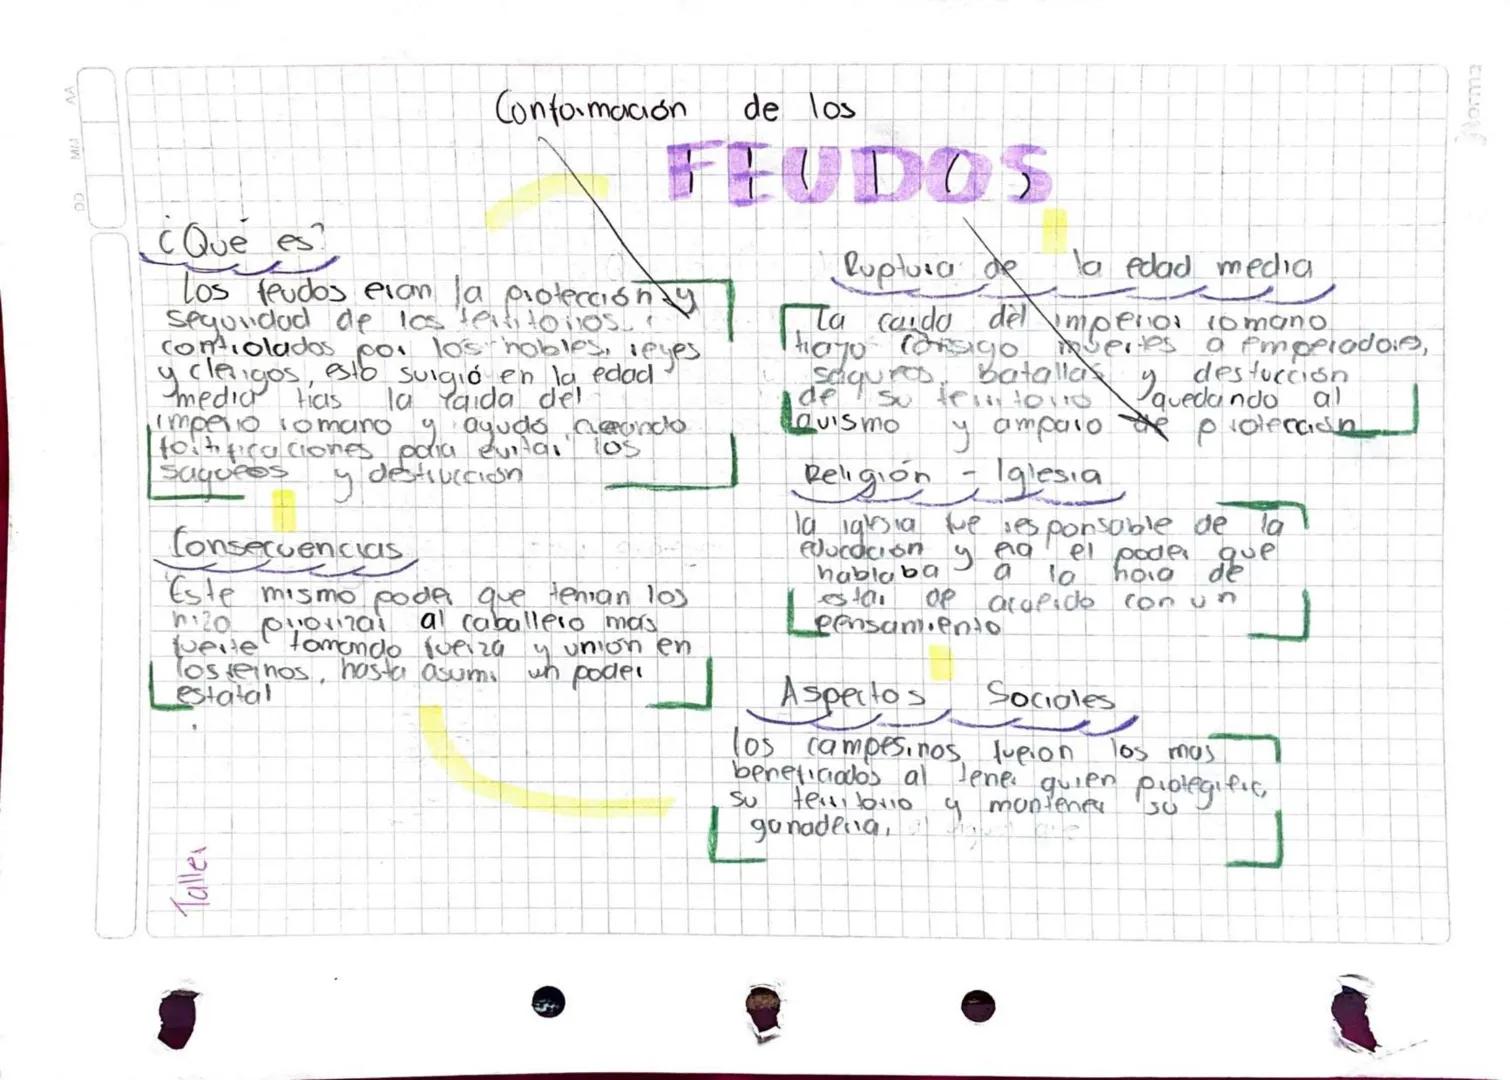 Conformación de los
FEUDOS
¿Qué es?
Los feudos eran la protección y
seguridad de los territorios
controlados por los nobles, reyes
y clerigos, esto surgió en la edad
media tras la caida del
imperio romano y ayudó creando
fortificaciones para evitar los
saqueos y destrucción
Consecuencias
Este mismo poder que tenian los
hizo priorizar al caballero mas
fuerte tomando fuerza y union en
los reinos, hasta asumir un poder
estatal
Ruptura de la edad media
La caida del imperior romano
trajo consigo muertes a emperadores,
saqueos, batallas y destucción
de su territorio quedando al
y amparo de proteccion
Religión - Iglesia
la iglesia fue responsable de la
educación y era el poder que
hablaba a la hora de
estar de acuerdo con un
pensamiento
Aspectos Sociales
los campesinos fueron los mas
beneficiados al tener quien
su territorio y mantener su
ganaderia,
Taller
AA
MM
DD
Norma